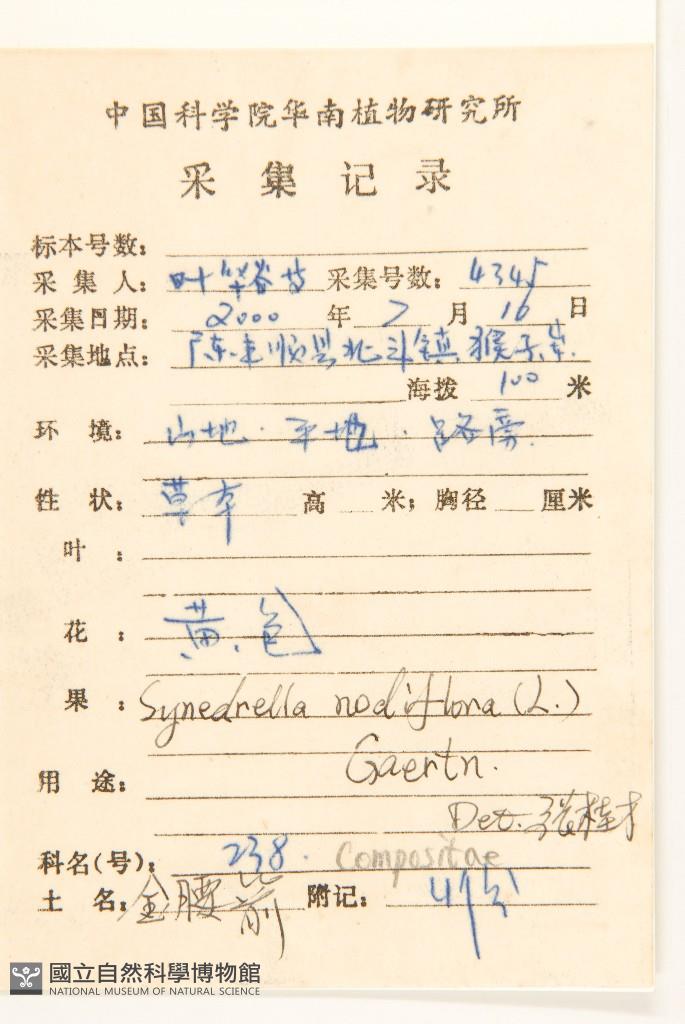 中国科学院华南植物研究所
采集记录
标本号数：
采集人：叶华谷等 采集号数：4345
采集日期：2000年7月16日
采集地点：广东丰顺县北斗镇猴子岽
海拨 100 米
环境：山地．平地．路旁
性状：草本 高 米；胸径 厘米
叶：
花：黄色
果：Synedrella nodiflora (L.)
Gaertn.
用途：
Det. 张桂才
科名(号)：238. Compositae
土名：金腰箭 附记：4份
國立自然科學博物館
NATIONAL MUSEUM OF NATURAL SCIENCE